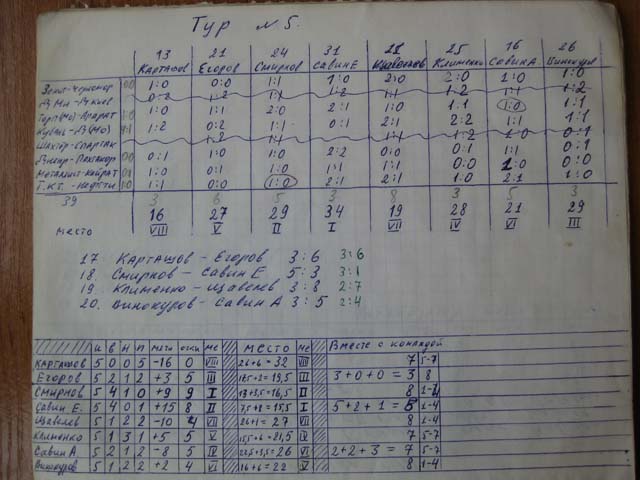 Тур № 5.
13 21 24 31 21 25 16 26
Карташов Егоров Смирнов Савин Е Щавелев Клименко Савин А Винокуров
Зенит-Черномор 0:0 1:0 0:0 1:1 1:0 2:0 2:0 1:0 1:0
Д.Мн-Д.Киев 0:2 1:2 1:1 1:2 1:1 1:2 1:1 1:2
Торп(Мо)-Арарат 1:0 1:0 1:1 2:0 2:1 1:0 1:1 1:0 1:1
Кубань-Д(Мо) 1:1 1:2 0:2 1:1 0:1 2:1 2:2 1:1 0:1
Шахтер-Спартак 1:1 1:2 0:1
Днепр-Пахтакор 0:0 0:1 1:0 1:0 2:2 0:0 0:1 1:1 0:1
Металлист-Кайрат 0:1 1:0 0:1 1:0 1:1 1:1 0:0 1:0 0:0
Г.К.Т.-Нефтчи 1:0 1:1 0:0 1:0 2:1 2:1 1:0 2:1 1:0
39 3 6 5 3 8 3 5 3
16 27 29 34 19 28 21 29
место VIII V II I VII IV VI III
17 Карташов - Егоров 3:6 3:6
18. Смирнов - Савин Е 5:3 3:1
19. Клименко - Щавелев 3:8 2:7
20. Винокуров - Савин А 3:5 2:4
и в н п мячи очки ме место ме Вместе с командой
Карташов 5 0 0 5 -16 0 VIII 26+6=32 VIII 7 5-7
Егоров 5 2 1 2 +3 5 III 18,5+1=19,5 III 3+0+0=3 8
Смирнов 5 4 1 0 +9 9 I 13+3,5=16,5 II 8 1-4
Савин Е. 5 4 0 1 +15 8 II 7,5+8=15,5 I 5+2+1=8 1-4
Щавелев 5 1 2 2 -10 4 VII 26+1=27 VII 8 1-4
Клименко 5 1 3 1 +5 5 V 15,5+6=21,5 IV 7 5-7
Савин А 5 2 1 2 -8 5 IV 22,5+3,5=26 VI 2+2+3=7 5-7
Винокуров 5 1 2 2 +2 4 VI 16+6=22 V 8 1-4